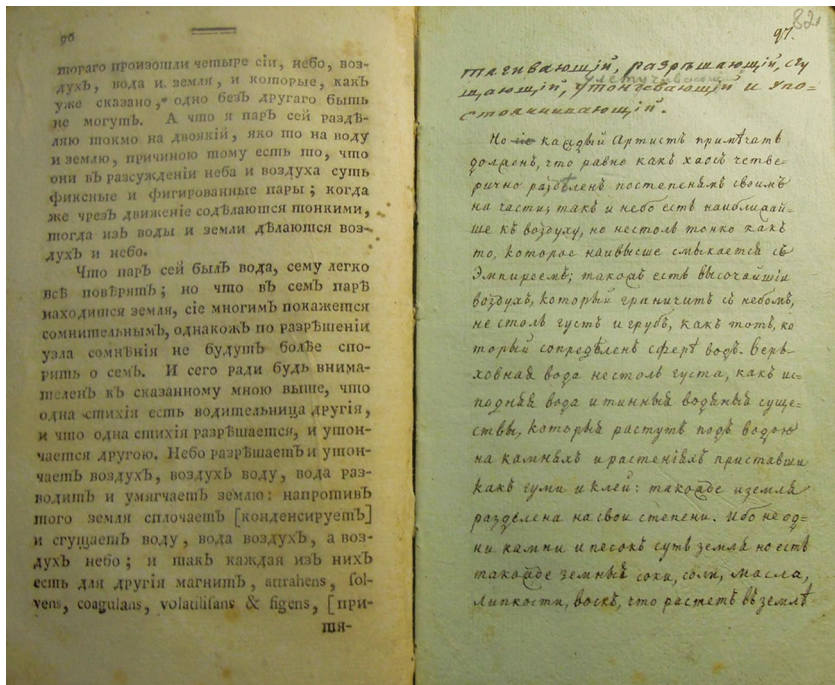 96
тораго произошли четыре сіи, небо, воз-
духъ, вода и земля, и которые, какъ
уже сказано, одно безъ другаго быть
не могутъ. А что я паръ сей раздѣ-
ляю токмо на двоякій, яко то на воду
и землю, причиною тому есть то, что
они въ разсужденіи неба и воздуха суть
фиксные и фигированные пары; когда
же чрезъ движеніе содѣлаются тонкими,
тогда изъ воды и земли дѣлаются воз-
духъ и небо.
Что паръ сей былъ вода, сему легко
всѣ повѣрятъ; но что въ семъ парѣ
находится земля, сіе многимъ покажется
сомнительнымъ, однакожъ по разрѣшеніи
узла сомнѣнія не будутъ болѣе спо-
рить о семъ. И сего ради будь внима-
теленъ къ сказанному мною выше, что
одна стихія есть водительница другія,
и что одна стихія разрѣшается, и утон-
чается другою. Небо разрѣшаетъ и утон-
чаетъ воздухъ, воздухъ воду, вода раз-
водитъ и умягчаетъ землю: напротивъ
того земля сплочаетъ [конденсируетъ]
и сгущаетъ воду, вода воздухъ, а воз-
духъ небо; и такъ каждая изъ нихъ
есть для другія магнитъ, attrahens, sol-
vens, coagulans, volatilisans & figens, [при-
тя-
82
97.
тягивающій, разрѣшающій, сгу
щающій, утончевающій и упо-
стоянивающій.
Но каждый Артистъ примѣчать
долженъ, что равно какъ хаосъ четве-
рично раздѣленъ постепенямъ своимъ
на части; такъ и небо есть наиближай-
ше къ воздуху, но нестоль тонко какъ
то, которое наивысше смыкается съ
Эмпиреемъ; такожъ есть высочайшій
воздухъ, который граничитъ съ небомъ,
не столь густъ и грубъ, какъ тотъ, ко
торый сопредѣленъ сферѣ водъ. Верь-
ховная вода нестоль густа, какъ ис-
подняя вода и тинныя водяныя суще-
ствы, которыя растутъ подъ водою
на камняхъ и растеніяхъ приставши
какъ гуми и клей: такожде и земля
разделена на свои степени. Ибо не од-
ни камни и песокъ суть земля но есть
такожде земныя соки, соли, масла,
липкости, воскъ, что растетъ въ землѣ